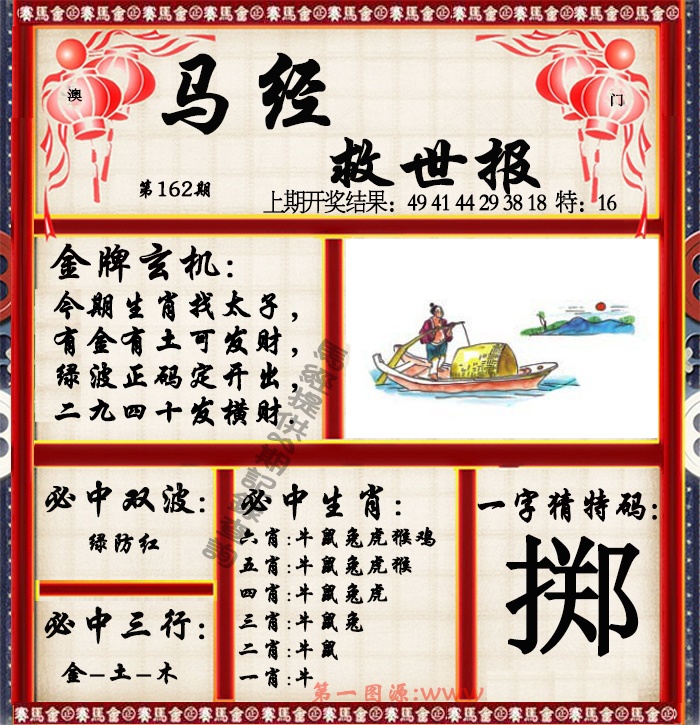 賽馬會 賽馬會 賽馬會 賽馬會 賽馬會 賽馬會 賽馬會 賽馬會
澳
门
马经
救世报
第162期
上期开奖结果：49 41 44 29 38 18 特：16
金牌玄机：
今期生肖找太子，
有金有土可发财，
绿波正码定开出，
二九四十发横财.
必中双波：
绿防红
必中三行：
金-土-木
必中生肖：
六肖:牛鼠兔虎猴鸡
五肖:牛鼠兔虎猴
四肖:牛鼠兔虎
三肖:牛鼠兔
二肖:牛鼠
一肖:牛
一字猜特码：
掷
第一图源:www